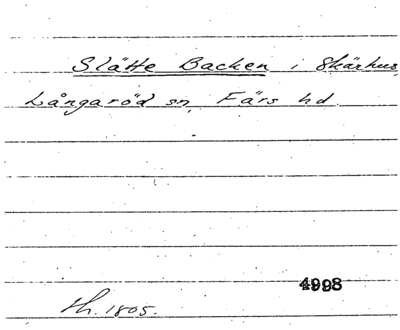 Slätte Backen i Skärhus,
Långaröd sn, Färs hd.
4998
Lh. 1805.